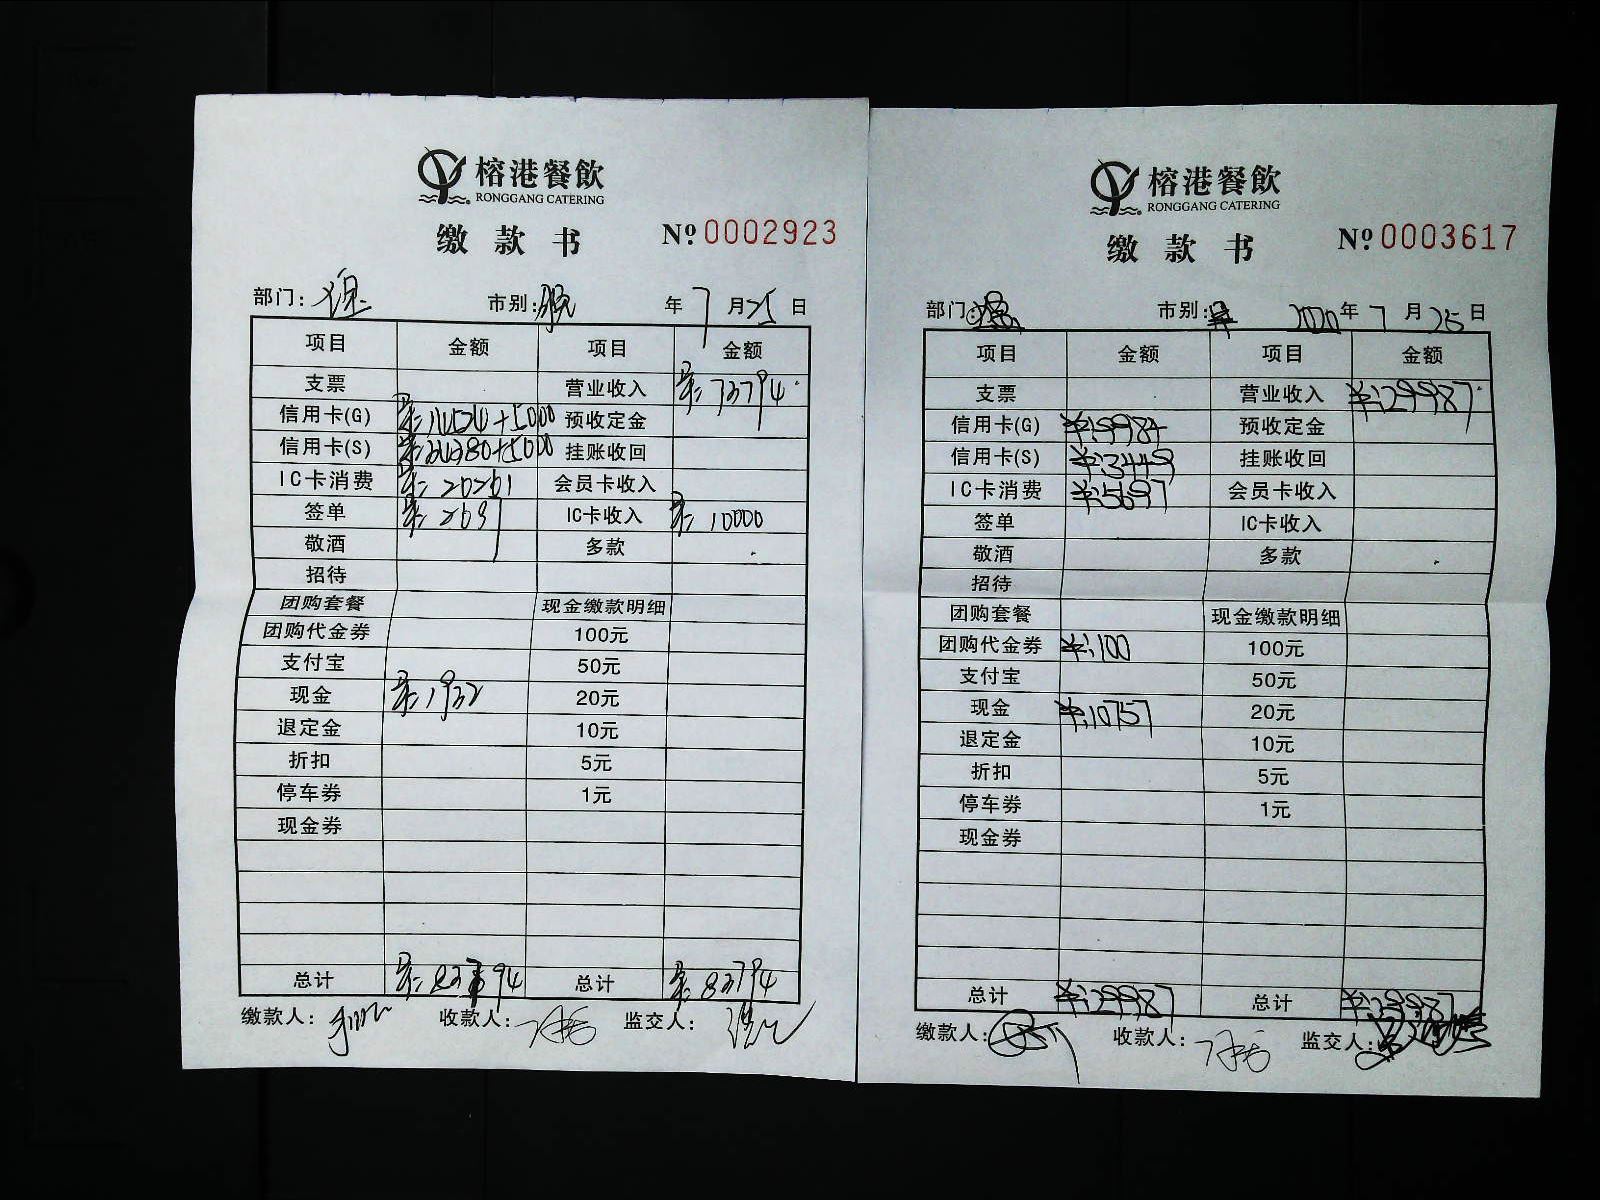 榕港餐飲
RONGGANG CATERING
缴款书 Nº 0002923
部门: 市别: 年 7 月 25 日
项目 金额 项目 金额
支票 营业收入 ¥:73794
信用卡(G) +5000 预收定金
信用卡(S) +5000 挂账收回
IC卡消费 ¥:20261 会员卡收入
签单 ¥:2637 IC卡收入 ¥:10000
敬酒 多款
招待
团购套餐 现金缴款明细
团购代金券 100元
支付宝 50元
现金 ¥:1932 20元
退定金 10元
折扣 5元
停车券 1元
现金券
总计 ¥:83794 总计 ¥:83794
缴款人: 收款人: 监交人:
榕港餐飲
RONGGANG CATERING
缴款书 Nº 0003617
部门: 市别: 2020 年 7 月 25 日
项目 金额 项目 金额
支票 营业收入 ¥:29987
信用卡(G) ¥:9984 预收定金
信用卡(S) ¥:3449 挂账收回
IC卡消费 ¥:5697 会员卡收入
签单 IC卡收入
敬酒 多款
招待
团购套餐 现金缴款明细
团购代金券 ¥:100 100元
支付宝 50元
现金 ¥:10757 20元
退定金 10元
折扣 5元
停车券 1元
现金券
总计 ¥:29987 总计 ¥:29987
缴款人: 收款人: 监交人: